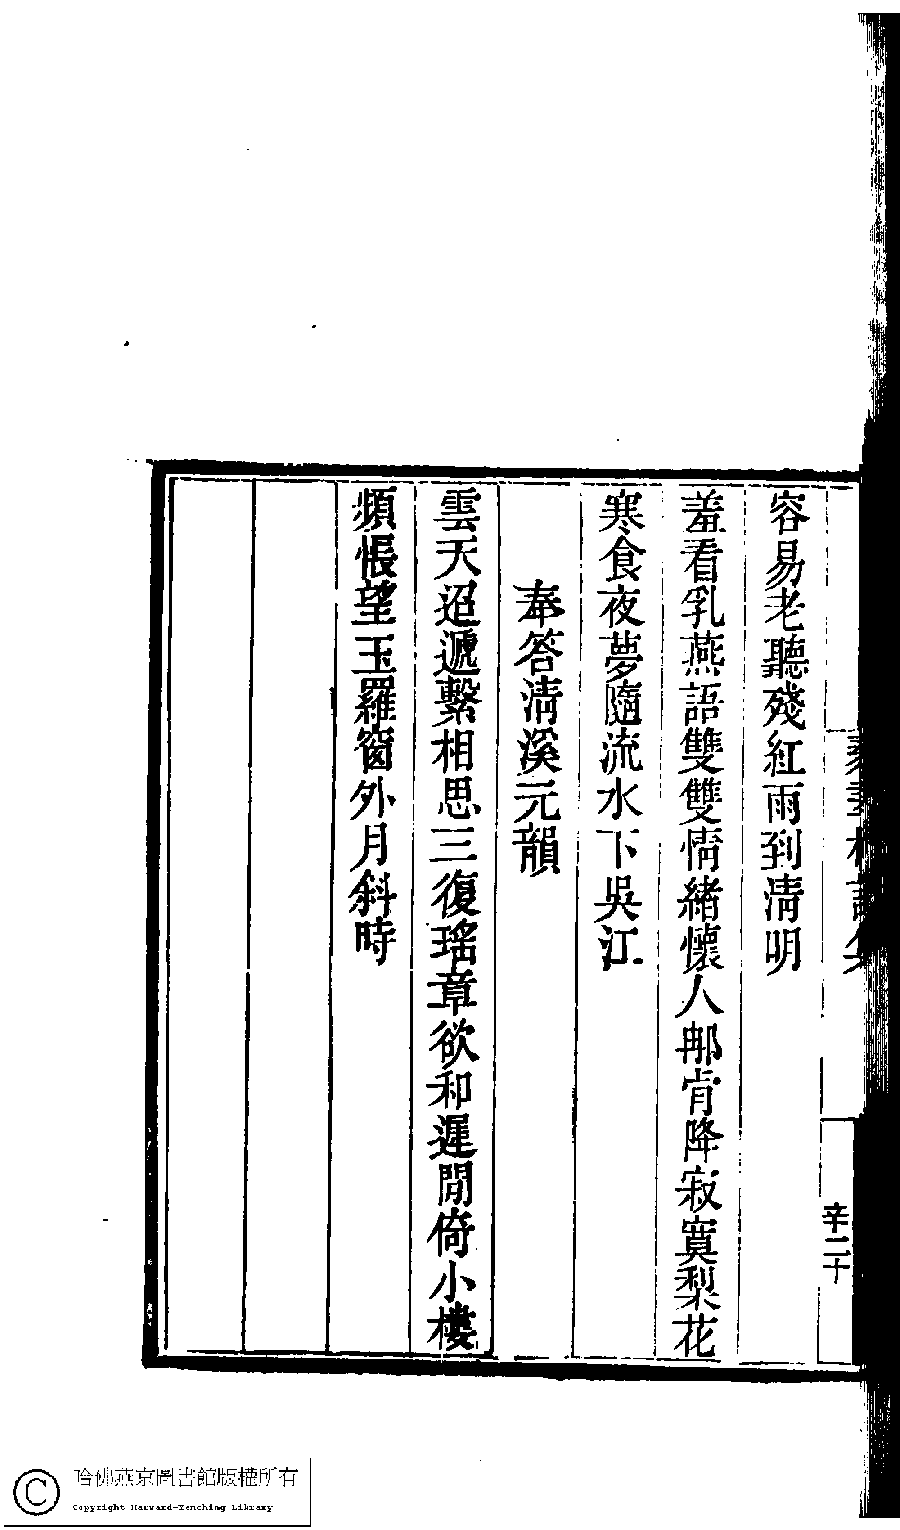 容易老聽殘紅雨到清明
羞看乳燕語雙雙情緒懷人那肯降寂寞梨花
寒食夜夢隨流水下吳江
奉答清溪元韻
雲天迢遞繫相思三復瑤章欲和遲閒倚小樓
頻悵望玉羅窗外月斜時
辛二十
哈佛燕京圖書館版權所有
Copyright Harvard-Yenching Library